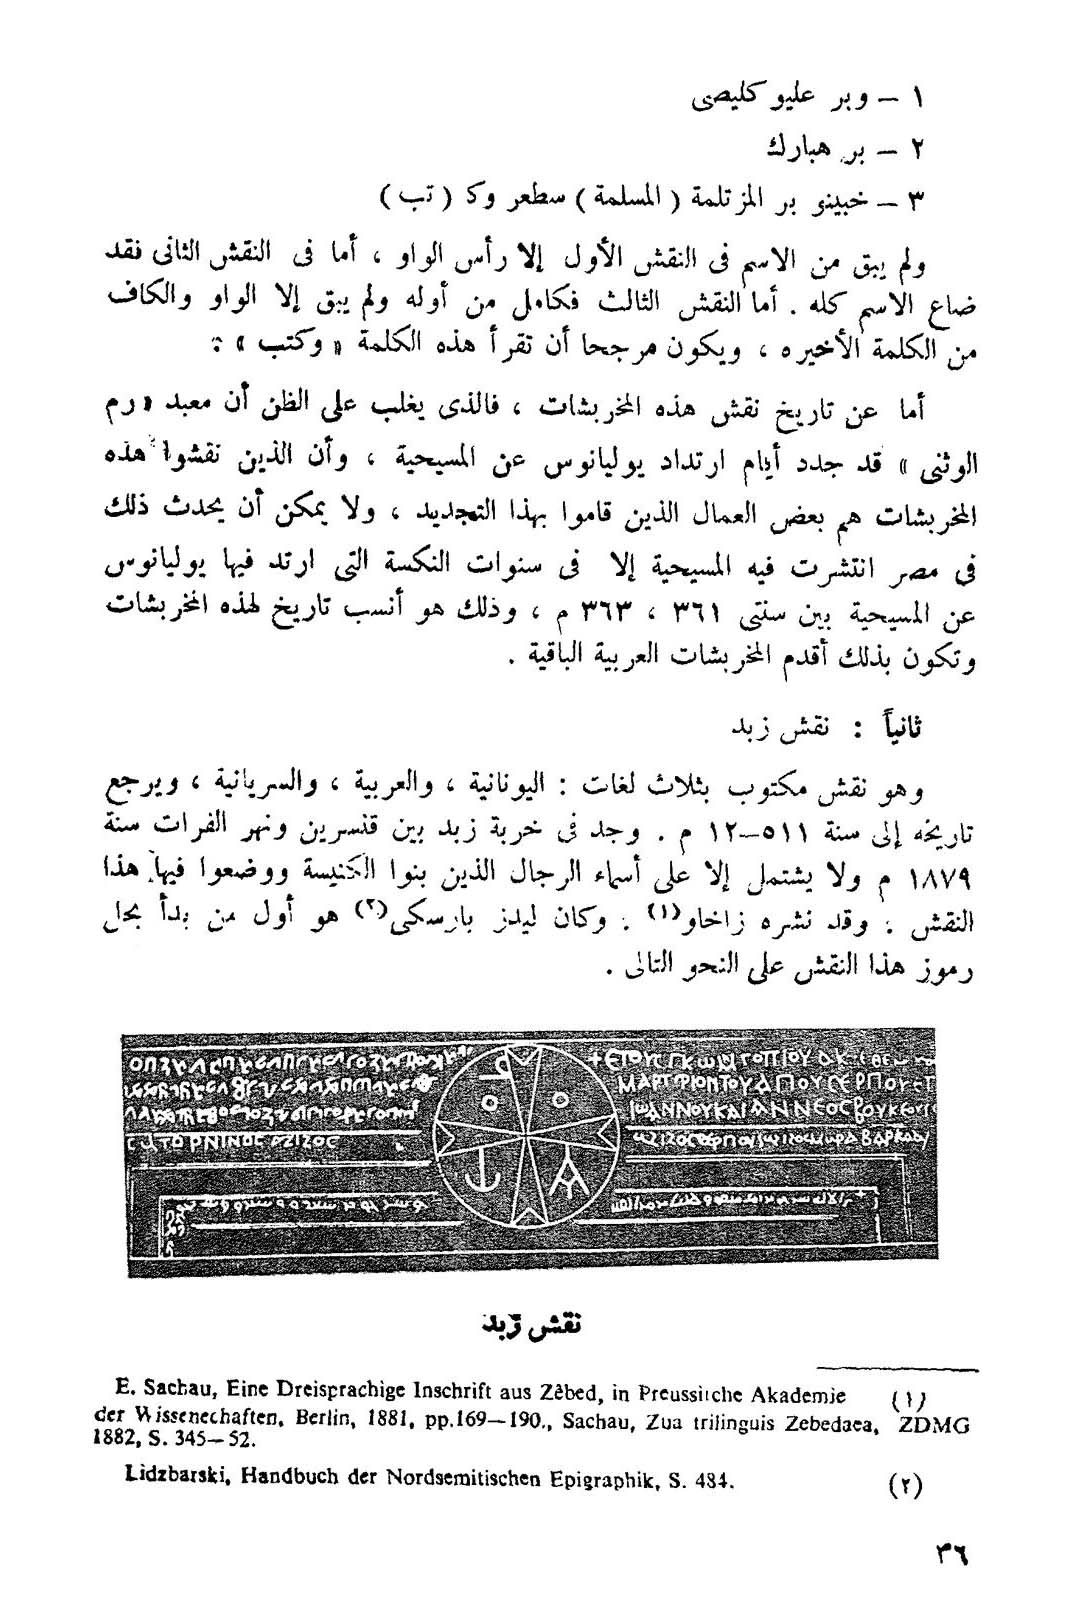 ١ – وبر عليو كليصى
٢ – بر هبارك
٣ – خبينو بر المزتلمة ( المسلمة ) سطعر وك ( تب )
ولم يبق من الاسم فى النقش الأول إلا رأس الواو ، أما فى النقش الثانى فقد
ضاع الاسم كله . أما النقش الثالث فكامل من أوله ولم يبق إلا الواو والكاف
من الكلمة الأخيره ، ويكون مرجحا أن تقرأ هذه الكلمة « وكتب » :
أما عن تاريخ نقش هذه المخربشات ، فالذى يغلب على الظن أن معبد « رم
الوثنى » قد جدد أيام ارتداد يوليانوس عن المسيحية ، وأن الذين نقشوا هذه
المخربشات هم بعض العمال الذين قاموا بهذا التجديد ، ولا يمكن أن يحدث ذلك
فى مصر انتشرت فيه المسيحية إلا فى سنوات النكسة التى ارتد فيها يوليانوس
عن المسيحية بين سنتى ٣٦١ ، ٣٦٣ م ، وذلك هو أنسب تاريخ لهذه المخربشات
وتكون بذلك أقدم المخربشات العربية الباقية .
ثانياً : نقش زبد
وهو نقش مكتوب بثلاث لغات : اليونانية ، والعربية ، والسريانية ، ويرجع
تاريخه إلى سنة ٥١١–١٢ م . وجد فى خربة زبد بين قنسرين ونهر الفرات سنة
١٨٧٩ م ولا يشتمل إلا على أسماء الرجال الذين بنوا الكنيسة ووضعوا فيها هذا
النقش . وقد نشره زاخاو(١) . وكان ليدز بارسكى(٢) هو أول من بدأ بحل
رموز هذا النقش على النحو التالى .
نقش زبد
E. Sachau, Eine Dreisprachige Inschrift aus Zêbed, in Preussische Akademie (١)
der Wissenechaften, Berlin, 1881, pp.169–190., Sachau, Zua trilinguis Zebedaea, ZDMG
1882, S. 345–52.
Lidzbarski, Handbuch der Nordsemitischen Epigraphik, S. 484. (٢)
٣٦